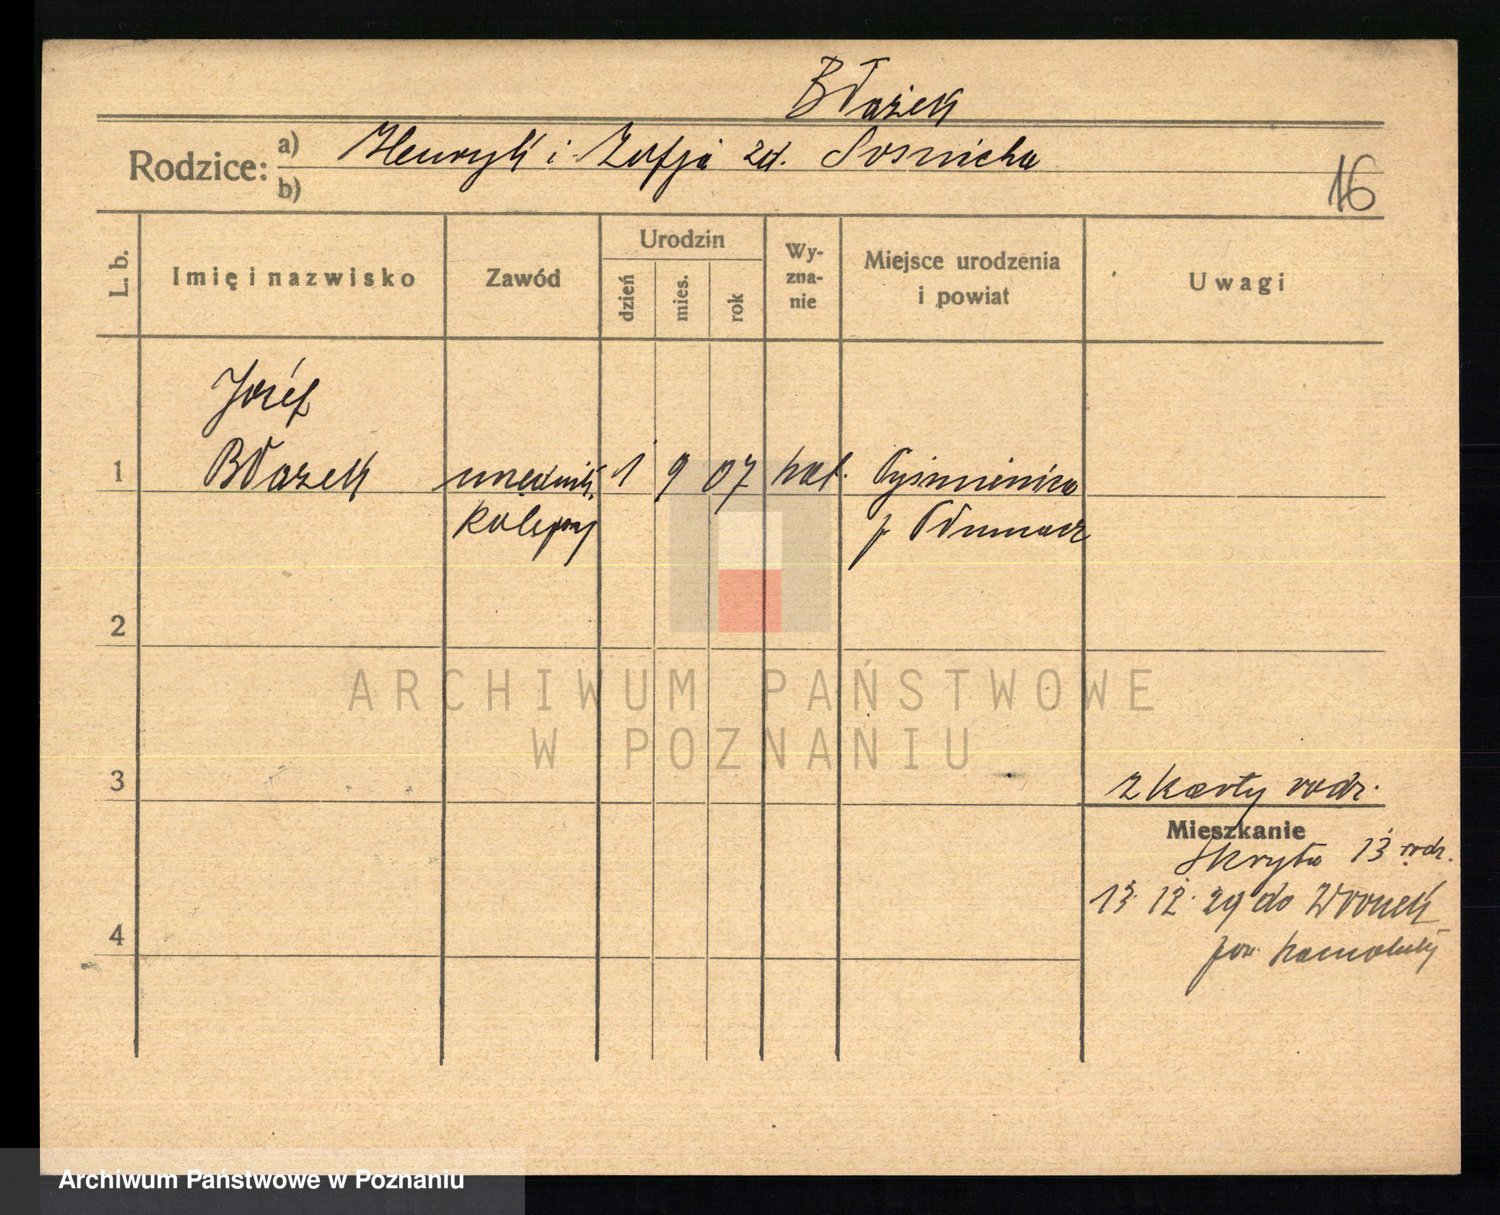 Błażek
Rodzice: a) Henryk i Zofja zd. Sosnicka
b)
16
L. b. Imię i nazwisko Zawód Urodzin dzień mies. rok Wy-zna-nie Miejsce urodzenia i powiat Uwagi
Józef
1 Błażek urzędnik 1 9 07 kat. Tyśmienica
kolejowy p Tłumacz
2
ARCHIWUM PAŃSTWOWE
W POZNANIU
3 z karty rodz.
Mieszkanie
Skryta 13 rodz.
13. 12. 29 do Wronek
4 pow.
Archiwum Państwowe w Poznaniu